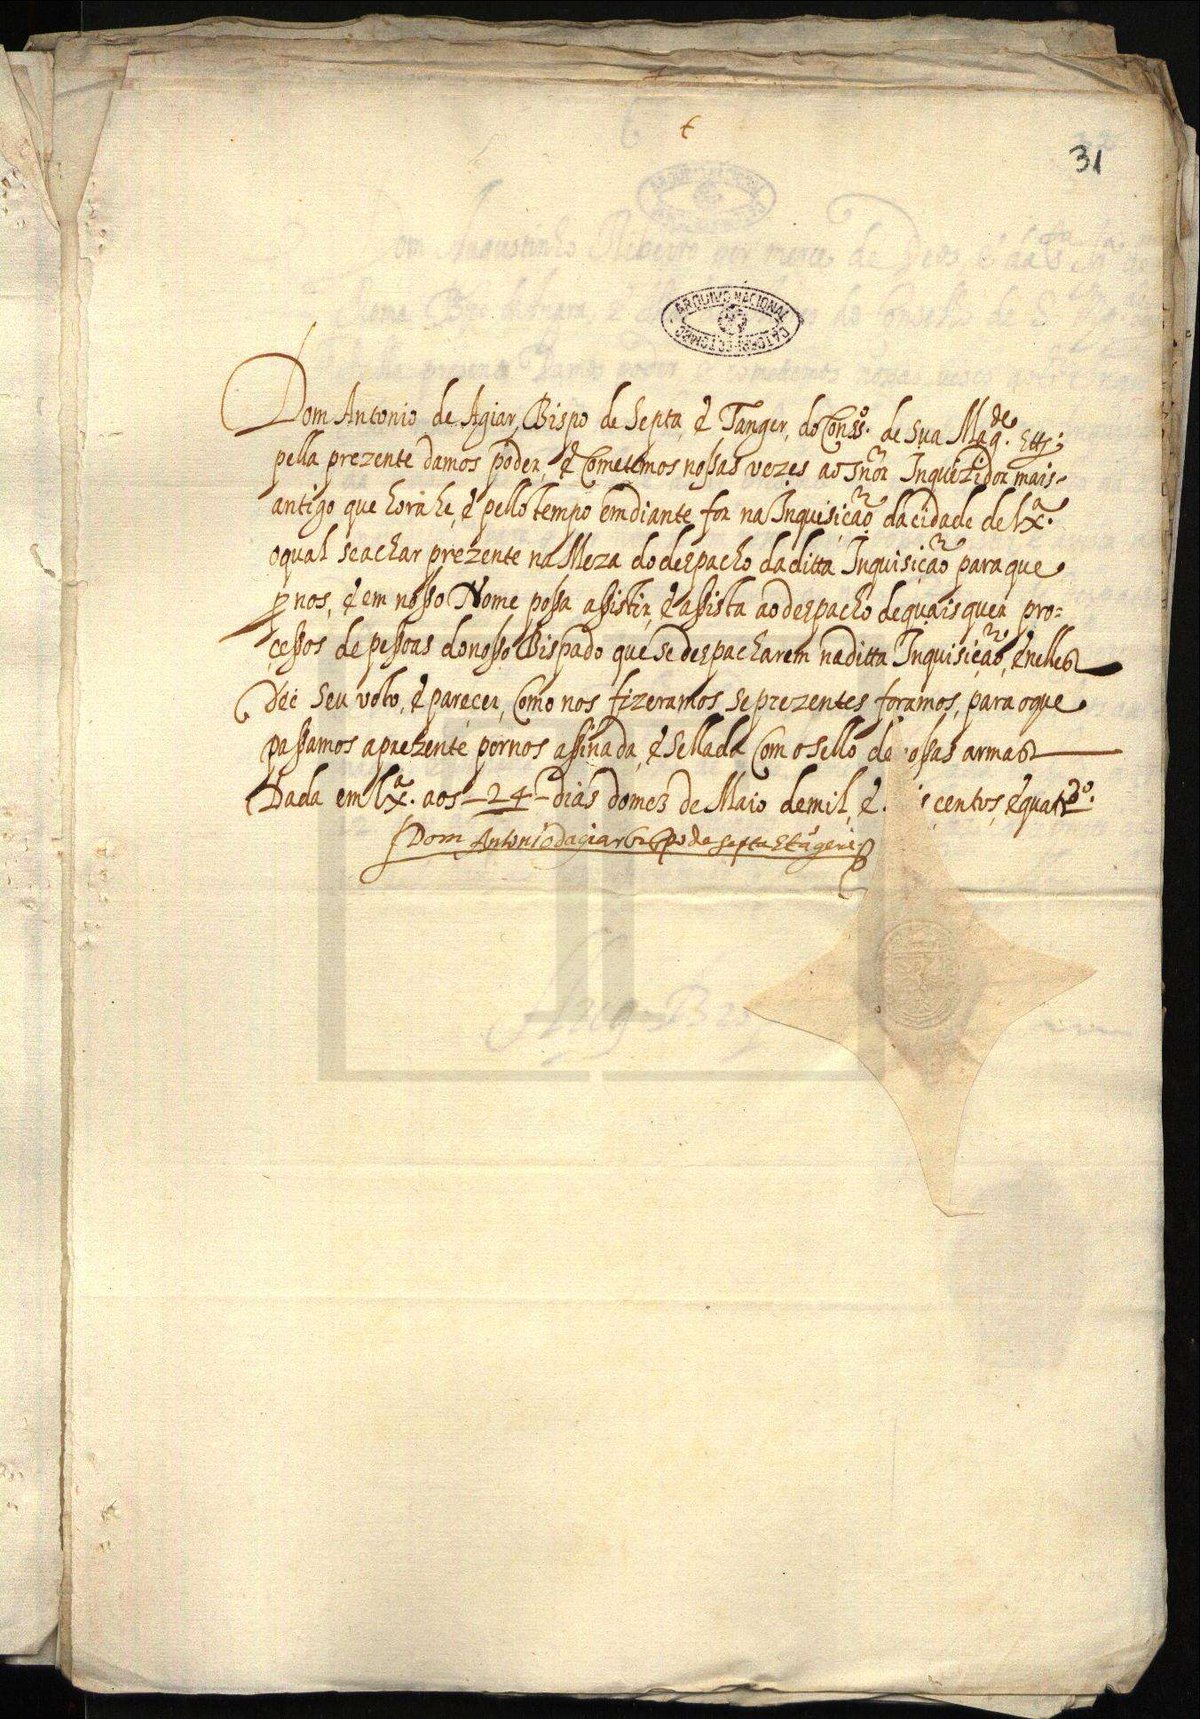 31
ARQUIVO NACIONAL
Dom Antonio de Agiar, Bispo de Septa, è Tanger, do Conss.º de Sua Mag.de Ett.
pella prezente damos poder, è Cometemos nossas vezes ao Snõr Inquezidor mais
antigo que hora he, è pello tempo emdiante for na Inquisição da cidade de Lx.ª
o qual se achar prezente na Meza do despacho da ditta Inquisição para que
p nos, è em nosso Nome possa assistir, è assista ao despacho de quais quer pro=
cessos de pessoas do nosso Bispado que se despacharem na ditta Inquisição, è nelles
dee seu voto, è parecer, Como nos fizeramos se prezentes foramos, para o que
passamos a prezente por nos assinada, è sellada Com o sello de ossas armas
Dada em Lx.ª aos 24 dias do mez de Maio de mil, è centos, è quatro
Dom Antonio dagiar bispo de septa e tãgere